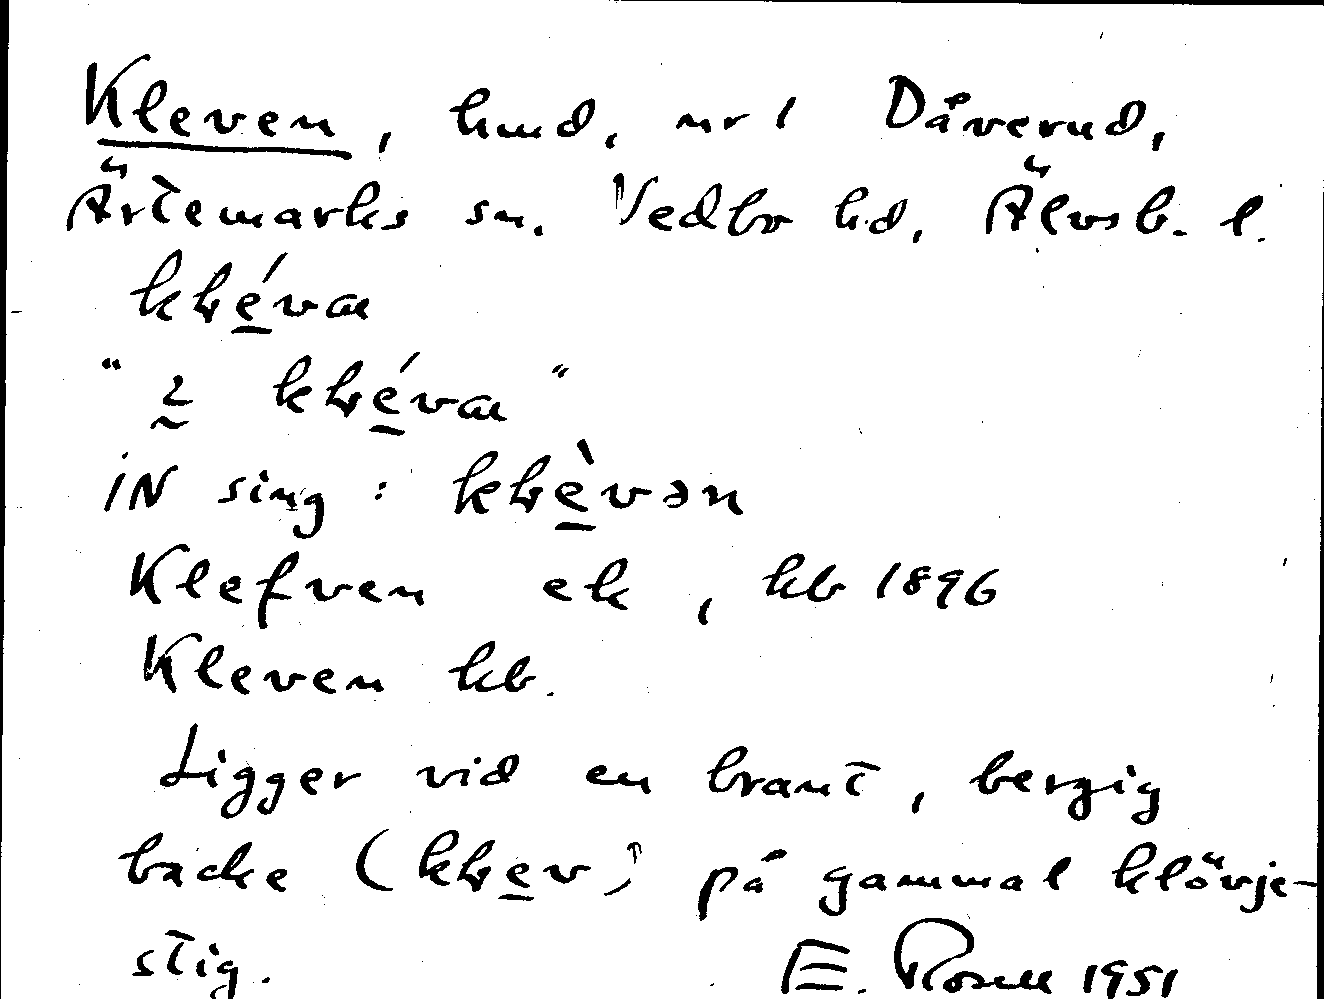 Kleven, hmd, nr 1 Dåverud,
Ärtemarks sn. Vedbo hd, Älvsb. l.
kłé̲va
"2̰ kłé̲va"
iN sing: kłè̲vən
Klefven ek, kb 1896
Kleven kb.
Ligger vid en brant, bergig
backe (kłe̲v) på gammal klövje-
stig. E. Rosell 1951